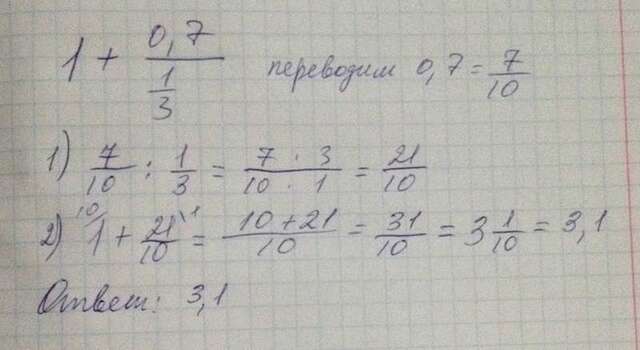 1 + 0,7/(1/3) переводим 0,7 = 7/10
1) 7/10 : 1/3 = (7 · 3)/(10 · 1) = 21/10
2) 1^10/ + 21\1/10 = (10+21)/10 = 31/10 = 3 1/10 = 3,1
Ответ: 3,1